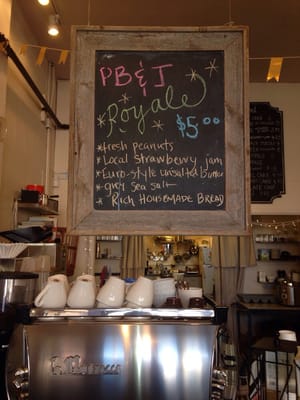 PB & J
Royale
$5.00
*fresh peanuts
*Local strawberry jam
*Euro-style unsalted butter
*grey sea salt
*Rich HOUSEMADE BREAD